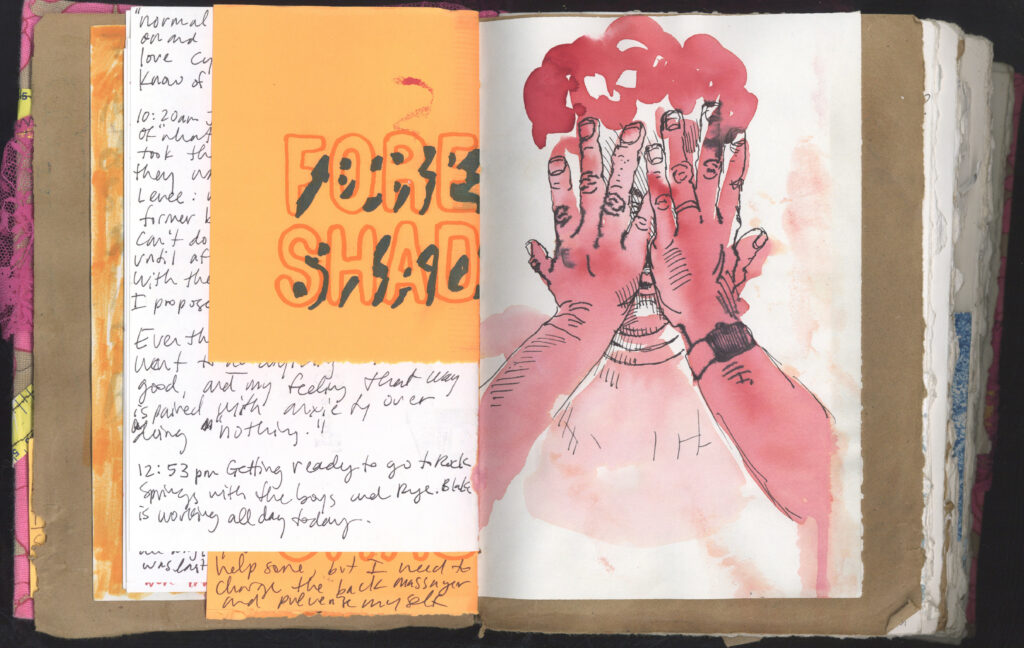 "normal
on and
love Cy
Know of
10:20am J
of "what
took th
they
Lenee:
former b
Can't do
until af
with the
I propose
FORE
SHAD
Even th
want to
good, and my feeling that way
is paired with anxiety over
doing "nothing."
12:53 pm Getting ready to go to Rock
Springs with the boys and Rye. Blake
is working all day today.
was last
help some, but I need to
charge the back massager
and prevent myself